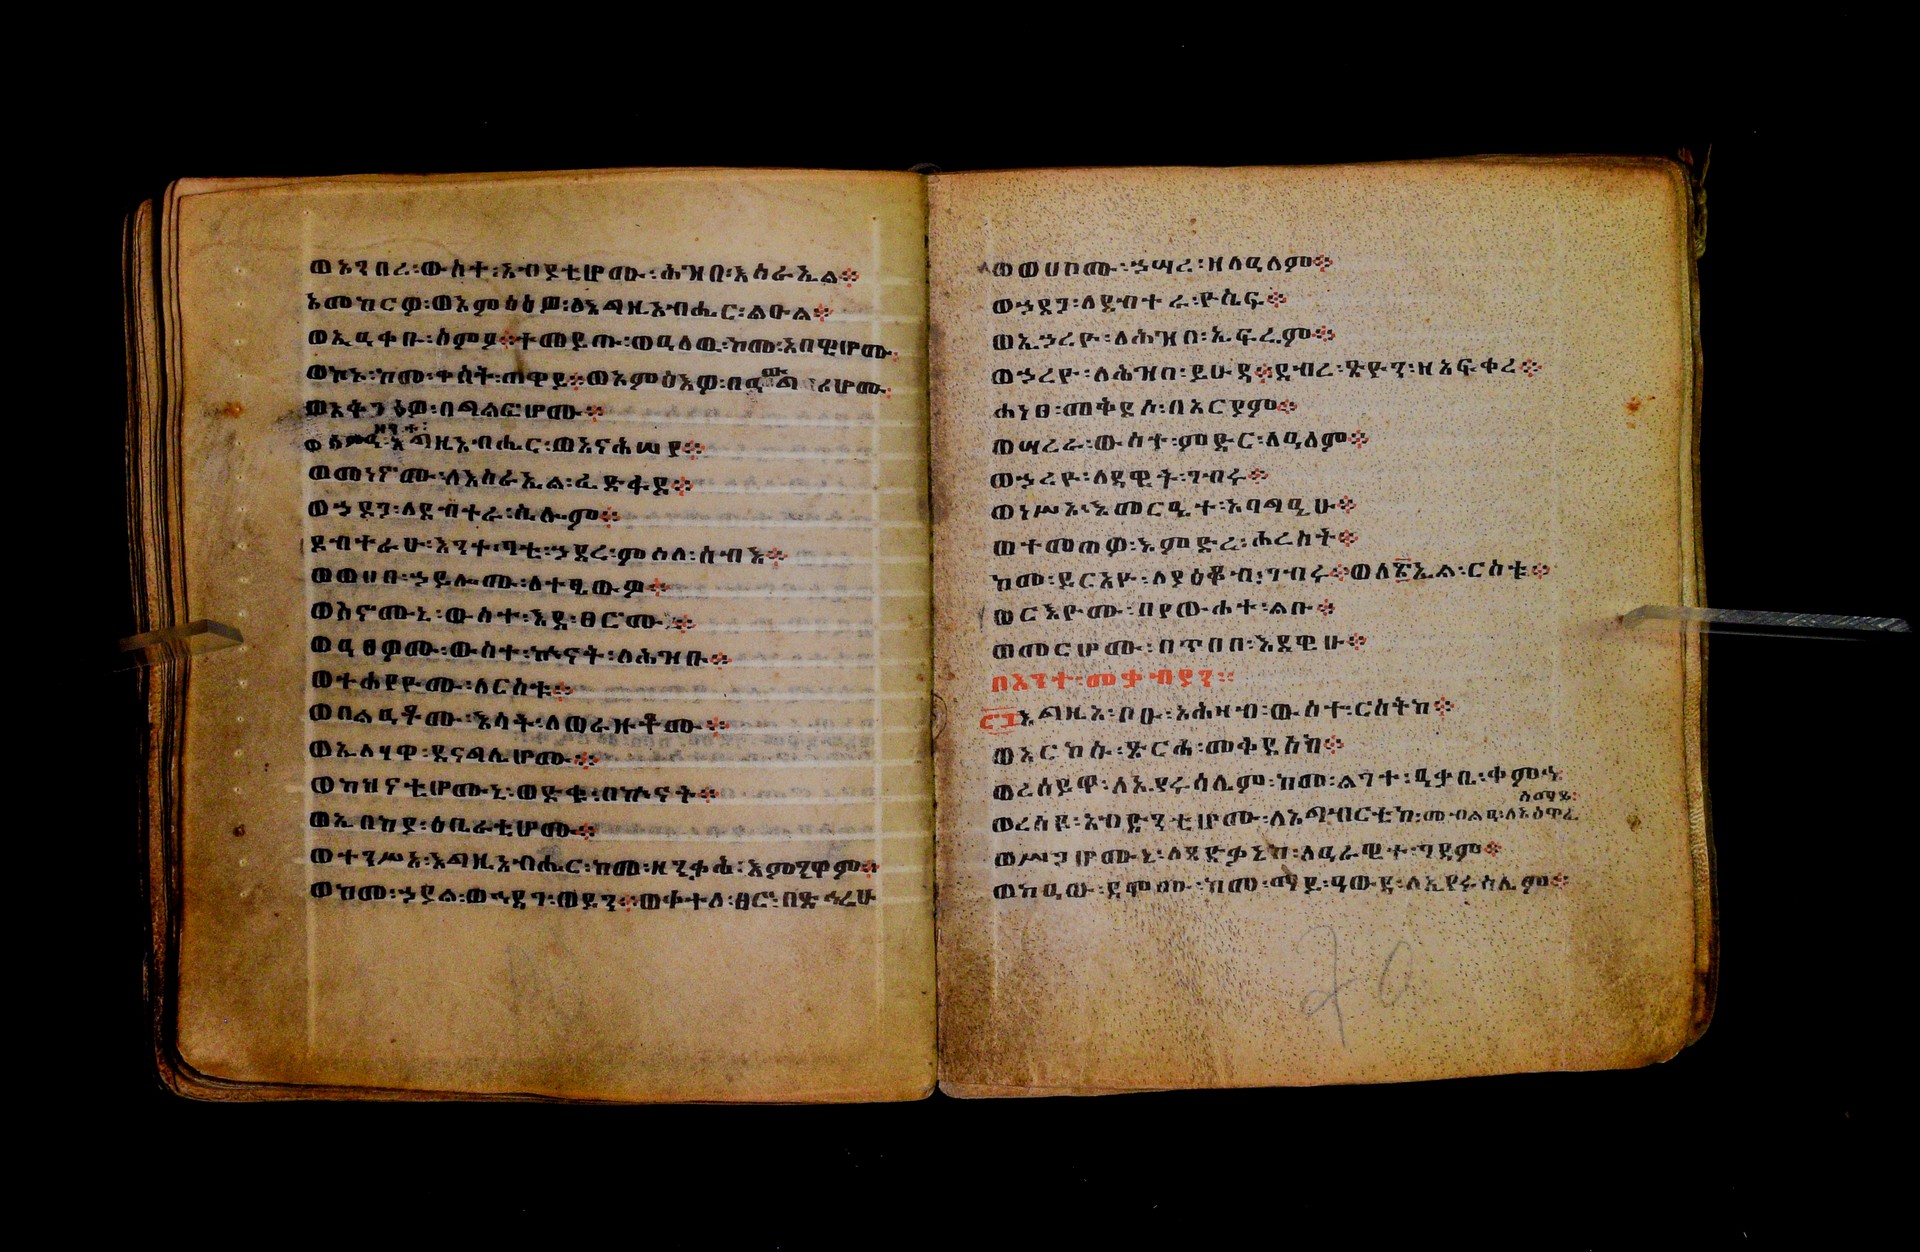 ወአንበረ፡ውስተ፡አብያቲሆሙ፡ሕዝበ፡እስራኤል፨
አመከርዎ፡ወአምዕዕዎ፡ለእግዚአብሔር፡ልዑል፨
ወኢዓቀቡ፡ስምዖ፨ተመይጡ፡ወዓለዉ፡ከመ፡አበዊሆሙ፨
ወኮኑ፡ከመ፡ቀስት፡ጠዋይ፨ወአምዕእዎ፡በአውግሪሆሙ፨
ወአቅንዕዎ፡በግልፎሆሙ፨
ወሰምዐ፡ዘንተ፡እግዚአብሔር፡ወአናሕሠየ፨
ወመነኖሙ፡ለእስራኤል፡ፈድፋደ፨
ወኃደጋ፡ለደብተራ፡ሴሎም፨
ደብተራሁ፡እንተ፡ባቲ፡ኃደረ፡ምስለ፡ሰብእ፨
ወወሀበ፡ኃይሎሙ፡ለተፄውዎ፨
ወሥኖሙኒ፡ውስተ፡እደ፡ፀሮሙ፨
ወዓፀዎሙ፡ውስተ፡ኵናት፡ለሕዝቡ፨
ወተሐየዮሙ፡ለርስቱ፨
ወበልዓቶሙ፡እሳት፡ለወራዙቶሙ፨
ወኢላሃዋ፡ደናግሊሆሙ፨
ወካህናቲሆሙኒ፡ወድቁ፡በኵናት፨
ወኢበከያ፡ዕቤራቲሆሙ፨
ወተንሥአ፡እግዚአብሔር፡ከመ፡ዘንቃህ፡እምንዋም፨
ወከመ፡ኃያል፡ወኅዳገ፡ወይን፨ወቀተለ፡ፀሮ፡በድኅሬሁ
ወወሀቦሙ፡ኃሣረ፡ዘለዓለም፨
ወኃደጋ፡ለደብተራ፡ዮሴፍ፨
ወኢኃረዮ፡ለሕዝበ፡ኤፍሬም፨
ወኃረዮ፡ለሕዝበ፡ይሁዳ፨ደብረ፡ጽዮን፡ዘአፍቀረ፨
ሐነፀ፡መቅደሱ፡በአርያም፨
ወሣረራ፡ውስተ፡ምድር፡ለዓለም፨
ወኃረዮ፡ለዳዊት፡ገብሩ፨
ወነሥአ፡እመርዔተ፡አባግዒሁ፨
ወተመጠዎ፡እምድኅረ፡ሐረሳት፨
ከመ፡ይርአዮ፡ለያዕቆብ፡ገብሩ፨ወለ፳ኤል፡ርስቱ፨
ወርእዮሙ፡በየውሐተ፡ልቡ፨
ወመርሆሙ፡በጥበበ፡እደዊሁ፨
በእንተ፡መቃብያን፡፡
እግዚኦ፡ቦኡ፡አሕዛብ፡ውስተ፡ርስትከ፨
ወአርኰሱ፡ጽርሐ፡መቅደስከ፨
ወረሰይዋ፡ለኢየሩሳሌም፡ከመ፡ልገተ፡ዓቃቤ፡ቀምሕ
ሰማይ፡
ወረሰዩ፡አብድንቲሆሙ፡ለአግብርቲከ፡መብልዓ፡ለአዕዋፈ
ወሥጋሆሙኒ፡ለጻድቃኒከ፡ለዓራዊተ፡ገዳም፨
ወከዓዉ፡ደሞሙ፡ከመ፡ማይ፡ዓውደ፡ለኢየሩሳሌም፨
20